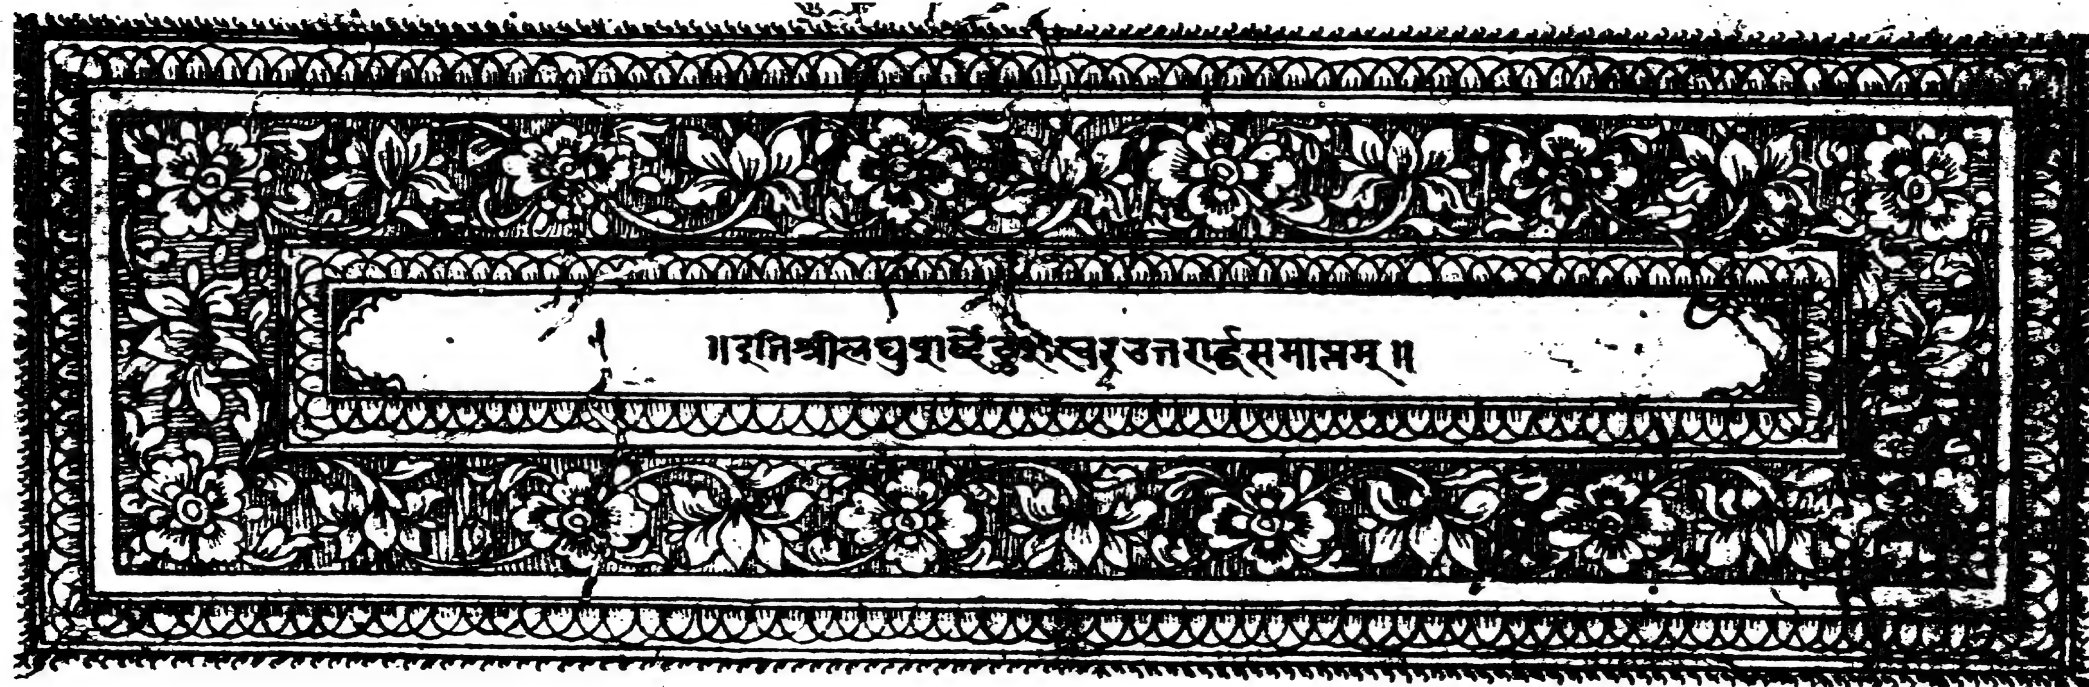 ॥इतिश्रीलघुशब्देंदुशेखरउत्तरार्द्धसमाप्तम्॥